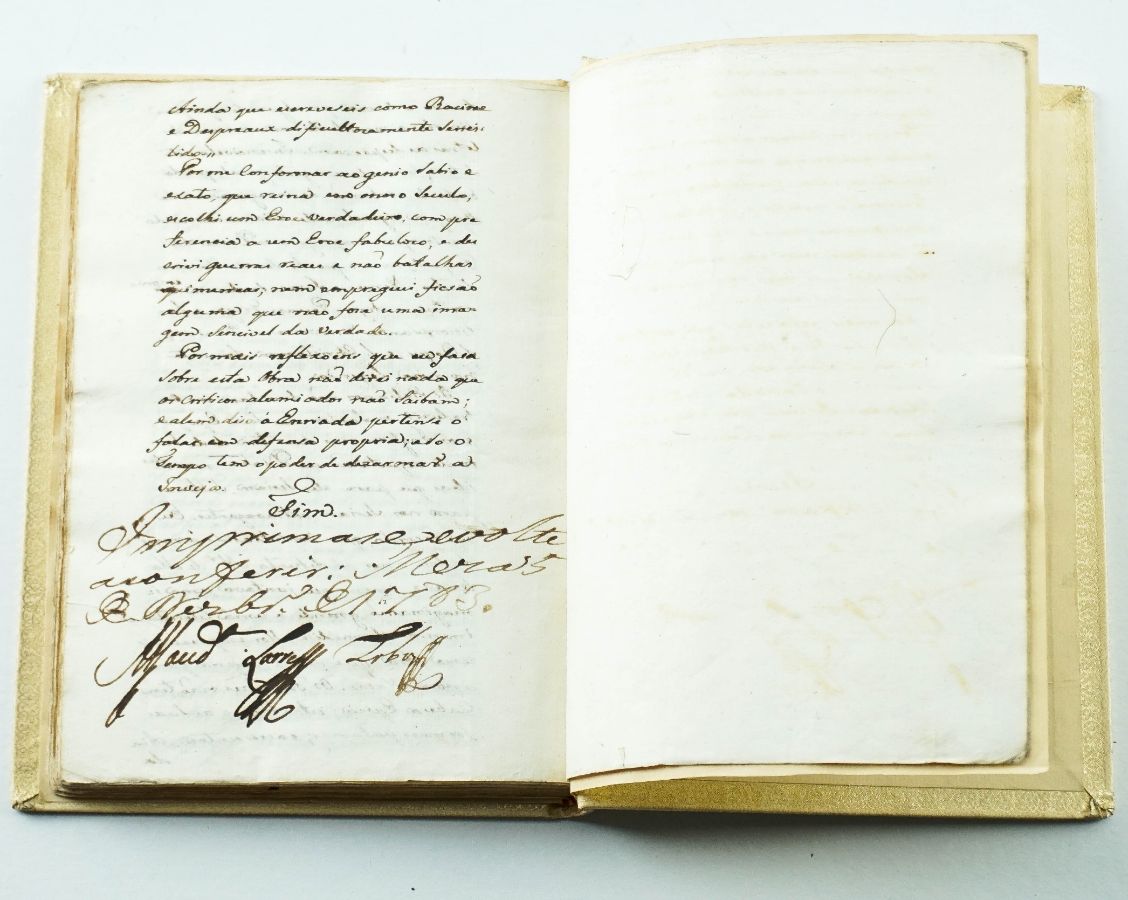 Ainda que escreveseis como Racine
e Despreaux dificultozamente sereis
lido.
Por me conformar ao genio sabio e
exato, que reina em noso Seculo,
escolhi um Eroe verdadeiro, com pre
ferencia a um Eroe fabulozo, e des
crivi guerras reaes e não batalhas
quimericas; nem empreguei ficsão
alguma que não fose uma ima-
gem sensivel da verdade.
Por mais reflexoens que eu fasa
sobre esta Obra não direi nada que
os criticos alumiados não saibam;
e alem diso á Enriada pertense o
falar em defensa propria; e so o
Tempo tem o poder de dezarmar a
Inveja.
Fim.
Imprimase, e volte
a conferir: Meza 5